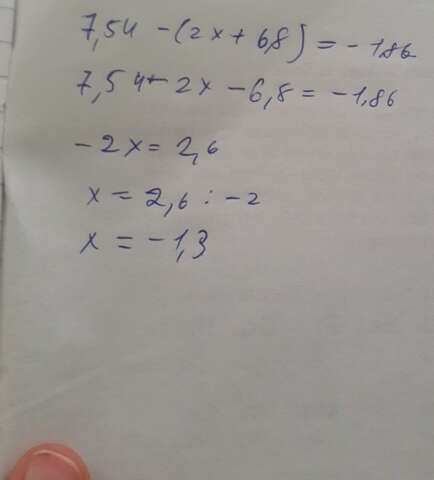 7,54 - (2x + 6,8) = -1,86
7,54 - 2x - 6,8 = -1,86
-2x = 2,6
x = 2,6 : -2
x = -1,3